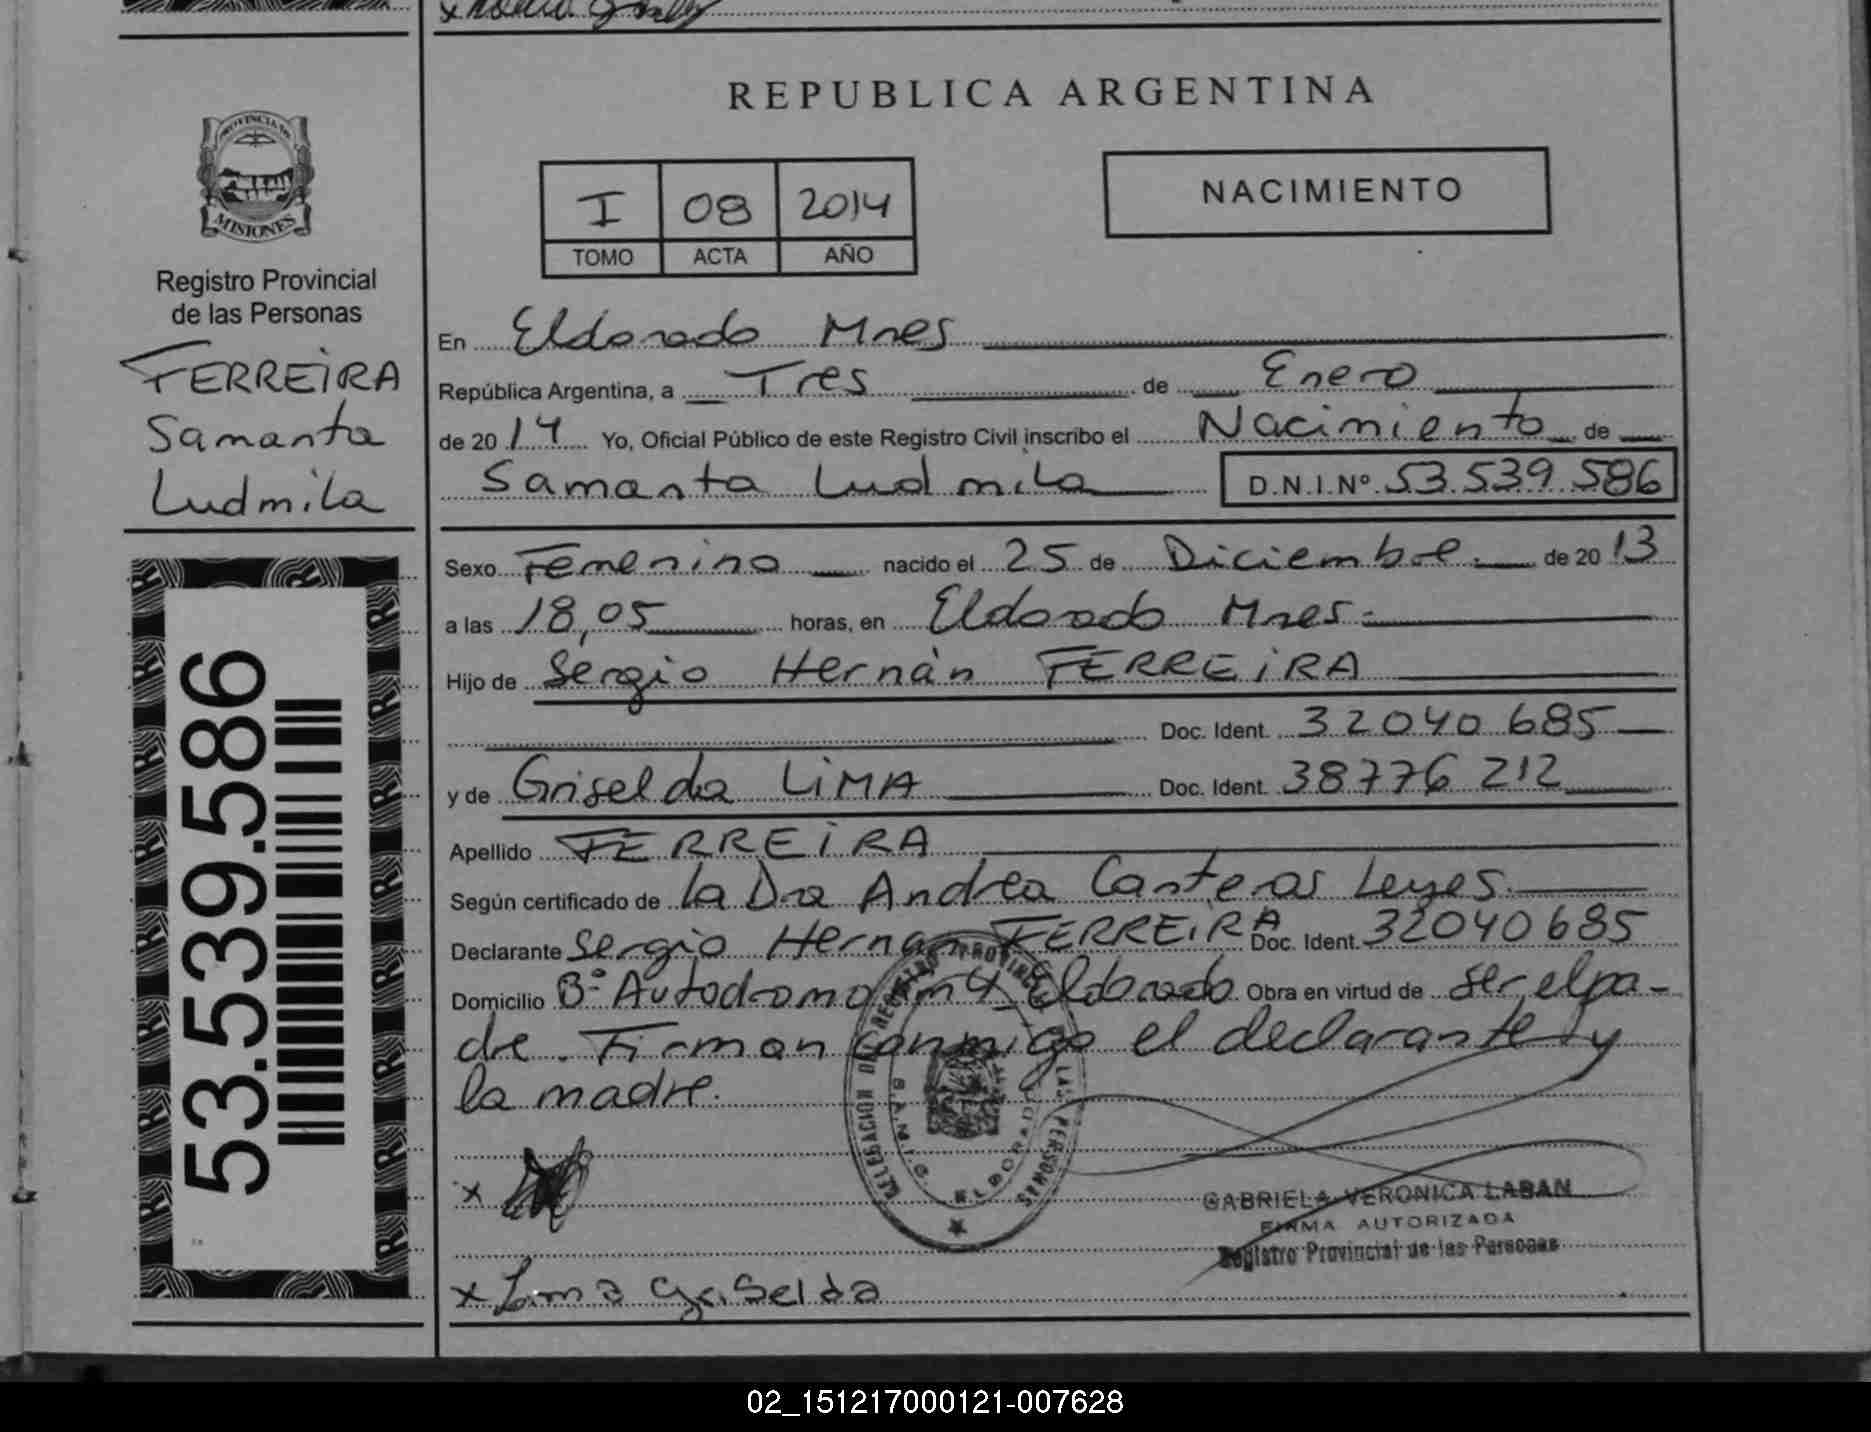 REPUBLICA ARGENTINA
PROVINCIA DE
MISIONES
Registro Provincial
de las Personas
FERREIRA
Samanta
Ludmila
53.539.586
I 08 2014
TOMO ACTA AÑO
NACIMIENTO
En Eldorado Mnes
República Argentina, a Tres de Enero
de 2014 Yo, Oficial Público de este Registro Civil inscribo el Nacimiento de
Samanta Ludmila D.N.I.Nº 53.539.586
Sexo Femenino nacido el 25 de Diciembre de 2013
a las 18,05 horas, en Eldorado Mnes.
Hijo de Sergio Hernán FERREIRA
Doc. Ident. 32040685
y de Griselda LIMA Doc. Ident. 38776212
Apellido FERREIRA
Según certificado de la Dra Andrea Canteros Leyes
Declarante Sergio Hernan FERREIRA Doc. Ident. 32040685
Domicilio Bº Autodromo km 4 Eldorado Obra en virtud de ser el pa-
dre. Firman conmigo el declarante y
la madre.
DELEGACION DE REGISTRO PROVINCIAL DE LAS PERSONAS
ELDORADO
GABRIELA VERONICA LABAN
FIRMA AUTORIZADA
Registro Provincial de las Personas
x
x Lima Griselda
02_151217000121-007628